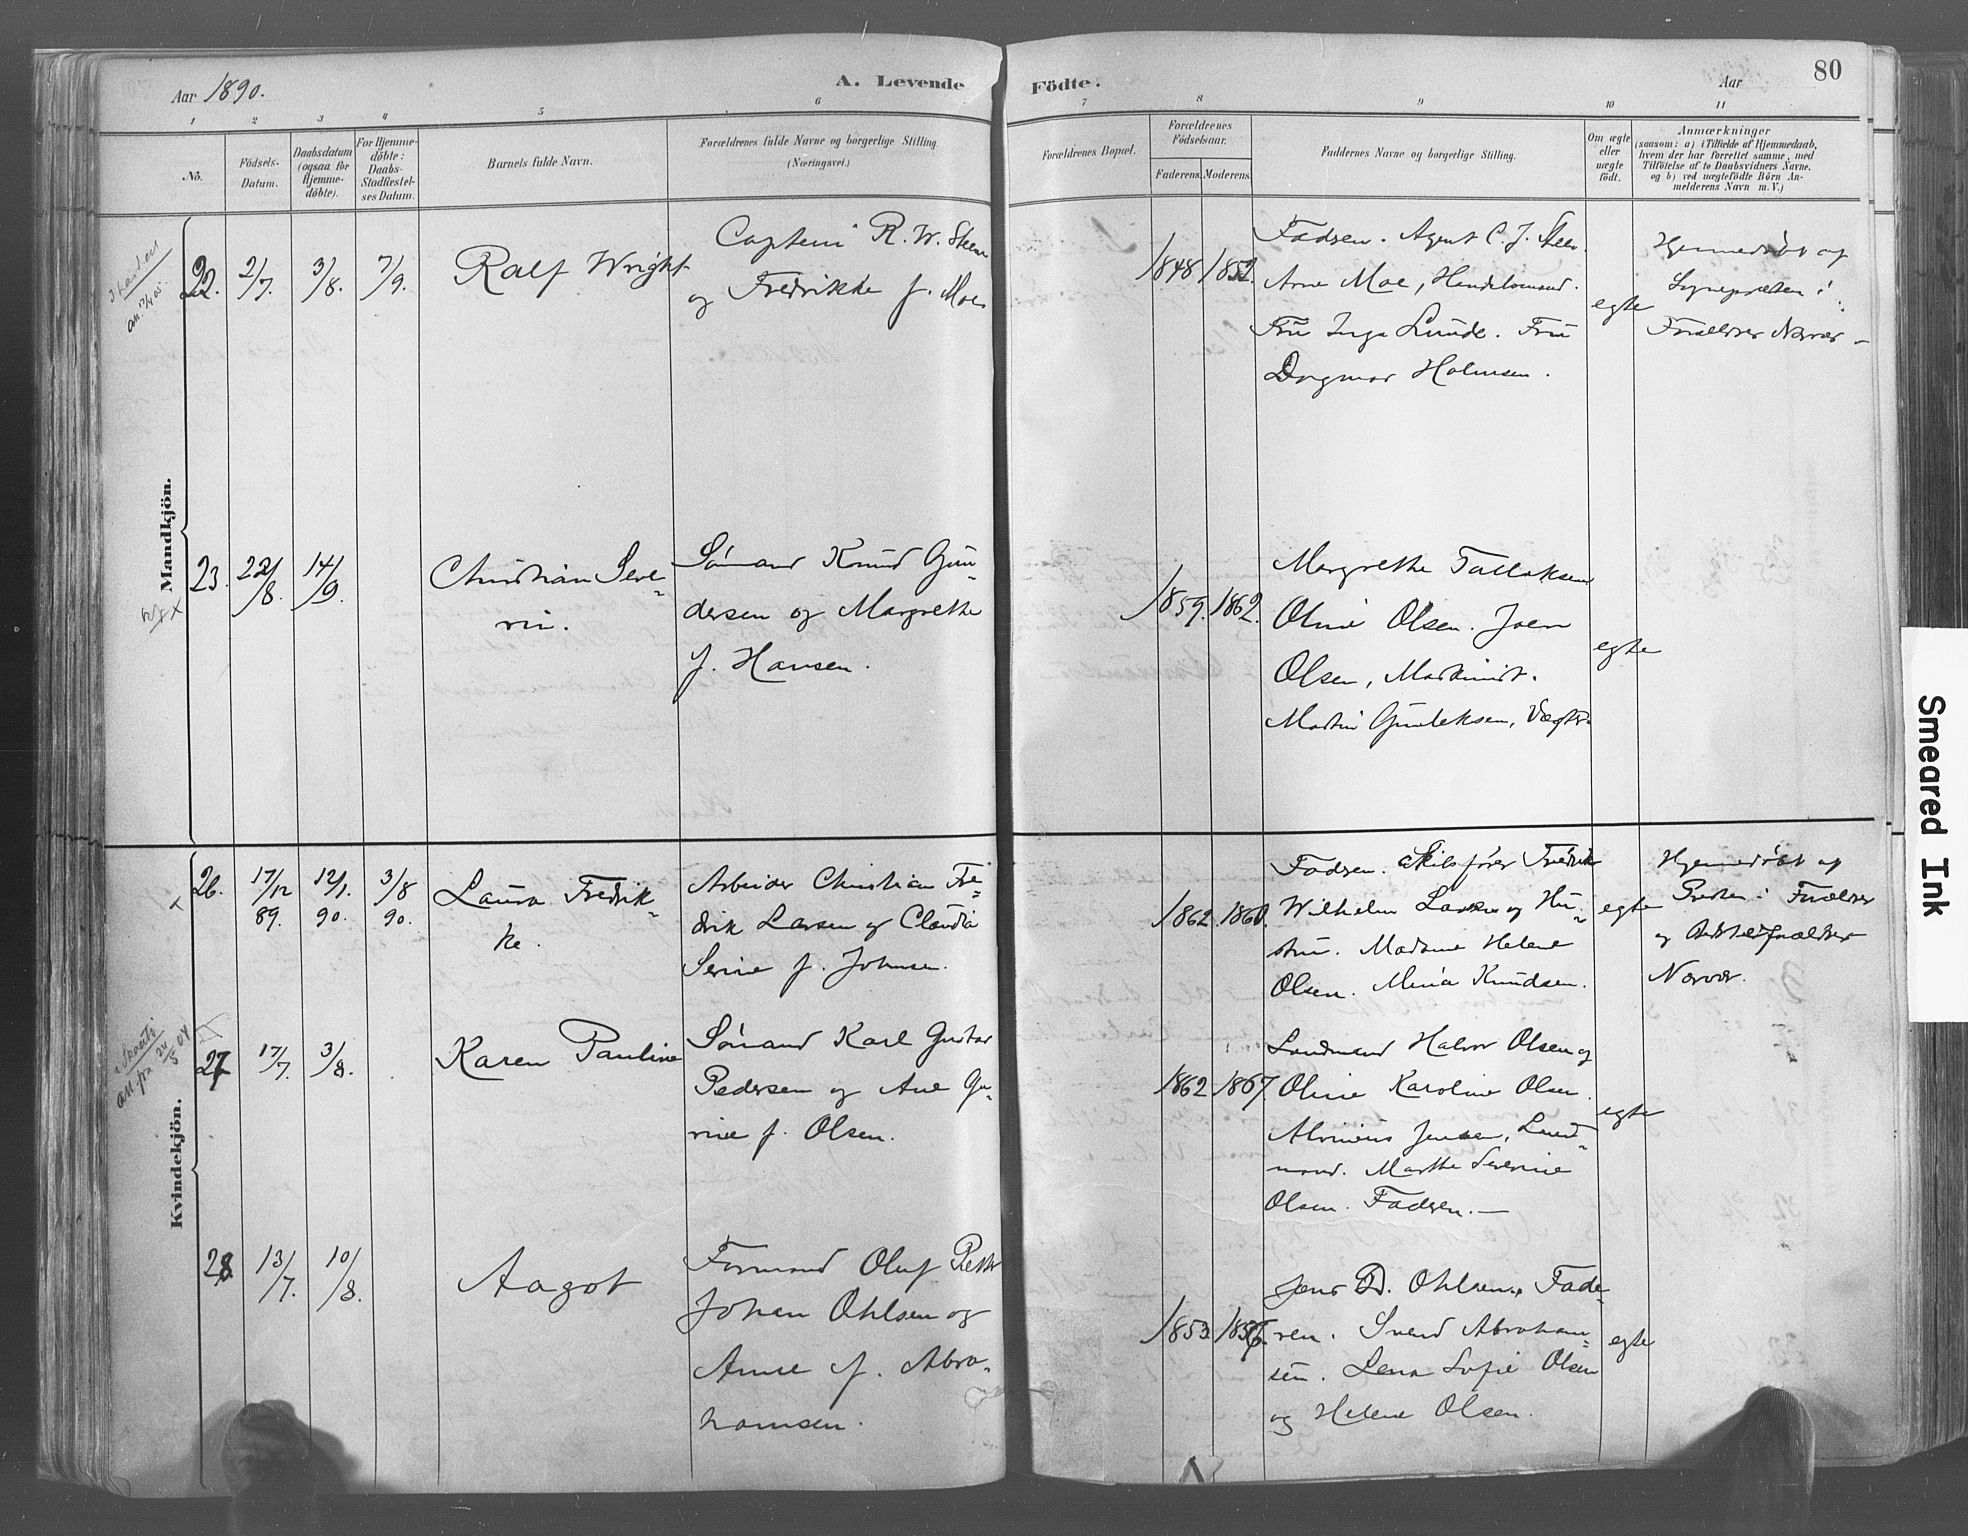 Aar 1890.
A. Levende
Födte.
Aar
80
1
2
3
4
5
6
7
8
9
10
11
No.
Födsels-
Datum.
Daabsdatum
(ogsaa for
Hjemme-
döbte).
For Hjemme-
döbte:
Daabs-
Stadfæstel-
ses Datum.
Barnets fulde Navn.
Forældrenes fulde Navne og borgerlige Stilling.
(Næringsvei.)
Forældrenes Bopæl.
Forældrenes
Födselsaar.
Faderens.
Moderens.
Faddernes Navne og borgerlige Stilling.
Om ægte
eller
uægte
födt.
Anmærkninger
(saasom: a) i Tilfælde af Hjemmedaab,
hvem der har forrettet samme, med
Tilföielse af to Daabsvidners Navne.
og b) ved uægtefödte Börn An-
melderens Navn m. V.)
Mandkjön.
22.
2/7.
3/8.
7/9.
Ralf Wright
Captein R. W. Steen
og Fredrikke f. Moe
1848
1852.
Fadren. Agent C. J. Steen
Arne Moe, Handelsmand.
Fru Inga Lunde. Fru
Dagmar Holmsen.
egte
Hjemmedøbt af
Sognepresten i
Forældres Nærvær
23.
22/8.
14/9.
Christian Seve-
rin.
Sømand Knud Gun-
dersen og Margrethe
f. Hansen.
1859.
1862.
Margrethe Tallaksen
Oline Olsen. Joen
Olsen, Maskinist.
Martin Gunleksen, Vægter
egte
Kvindekjön.
26.
17/12
89.
12/1.
90.
3/8
90.
Laura Fredrik-
ke.
Arbeider Christian Fre-
drik Larsen og Claudia
Serine f. Johnsen.
1862.
1860.
Fadren. Skibsfører Fredrik
Wilhelm Larsen og Hu-
stru. Madame Helene
Olsen. Mina Knudsen.
egte
Hjemmedøbt af
Presten i Forældres
og Bedsteforældres
Nærvær.
27
17/7.
3/8.
Karen Pauline
Sømand Karl Gustav
Pedersen og Ane Gu-
rine f. Olsen.
1862
1867
Landmand Halvor Olsen og
Oline Karoline Olsen.
Jensen, Land-
mand. Marthe Severine
Olsen. Fadren.—
egte
28
13/7.
10/8.
Aagot
Formand Oluf Petter
Johan Ohlsen og
Anne f. Abra-
hamsen.
1853.
1856.
Jens D. Ohlsen, Fade-
ren. Svend Abraham-
sen. Lena Sofie Olsen
og Helene Olsen.
egte
Smeared Ink